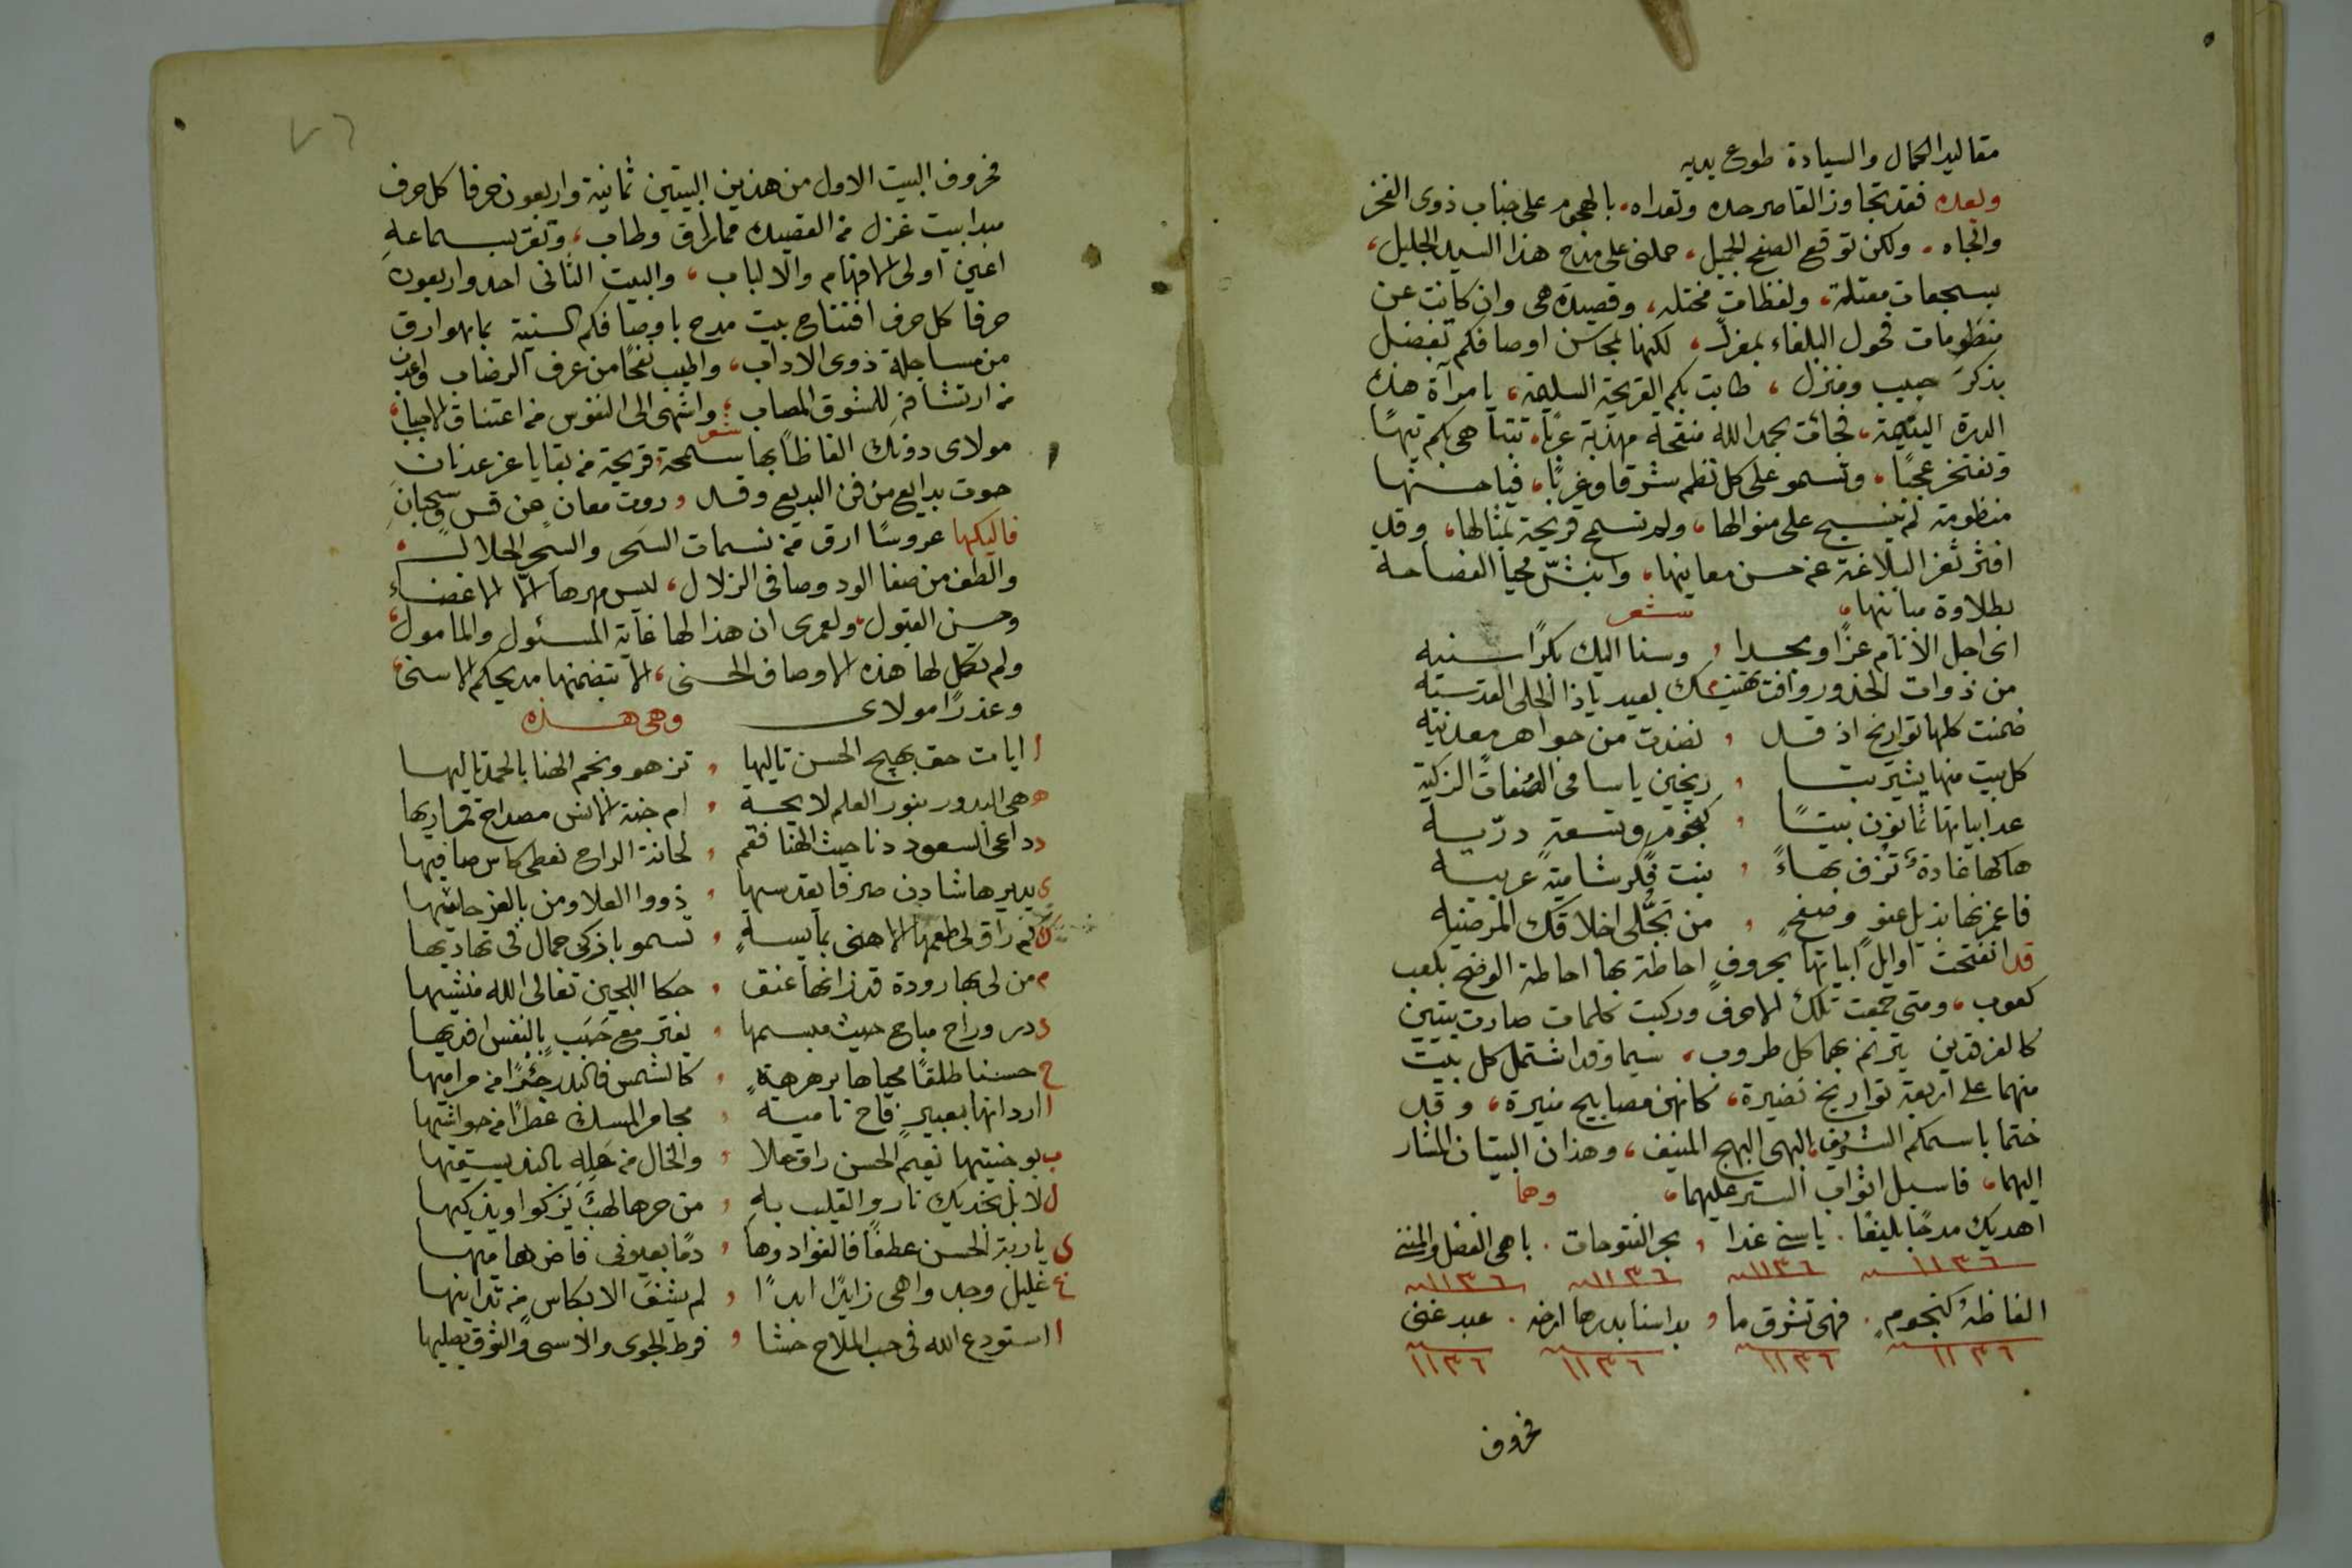 مقاليد الكمال والسيادة طوع يديه
وبعده فقد تجاوز القاصر حده وتعداه، بالهجوم على جناب ذوى الفخر
والجاه، ولكن توقع الصفح الجميل، حملنى على مدح هذا السيد الجليل،
بسجعات معتلة، ولفظات مختله، وقصيدة هى وان كانت عن
منظومات فحول البلغاء بمعزل، لكنها بمحاسن اوصافكم تفضل
بذكر حبيب ومنزل، طابت بكم القريحة السليمة، يا مرآة هذه
الدرة اليتيمة، فجائت بحمد الله منقحة مهذبة عربًا، تتباهى بكم تيهًا
وتفتخر عجبًا، وتسمو على كل نظم شرقا وغربًا، فيا حسنها
منظومة لم ينسج على منوالها، ولم تسمح قريحة بمثالها، وقد
افتر ثغر البلاغة عن حسن معانيها، وابتش محيا الفصاحة
بطلاوة مبانيها، شعر
انى اجل الانام عزًا ومجدا، وسنا اليك بكرًا سنيه
من ذوات الخدور وافت تهنيك بعيد ياذا الحلى القدسيه
ضمنت كلها تواريخ اذ قد، نضدت من جواهر معدنيه
كل بيت منها يشير بتا، ريخين يا سامى الصفات الزكية
عد ابياتها ثمانون بيتًا، كنجوم وتسعة دريه
هاكها غادة تزف بهاءً، بنت فكر شامية عربيه
فاغمرنها بذيل عفو وصفح، من تجلى اخلاقك المرضيه
قد انفتحت اوايل ابياتها بحروف احاطة بها احاطة الوضح بكعب
كعوب، ومتى جمعت تلك الاحرف وركبت كلمات صارت بيتين
كالفرقدين يترنم بهما كل طروب، سيما وقد اشتمل كل بيت
منهما على اربعة تواريخ نضيرة، كانهن مصابيح منيرة، وقد
ختما باسمكم الشريف، البهى البهج المنيف، وهذان البيتان المشار
اليهما، فاسبل اثواب الستر عليهما، وهما
اهديك مدحًا بليغًا. يا سنى غدا، بحر الفتوحات. باهى الفضل والمنن
١١٣٦ ١١٣٦ ١١٣٦ ١١٣٦
الفاظه كنجوم. فهى تشرق ما، بدا سنا بدرها ارخه. عبد غنى
١١٣٦ ١١٣٦ ١١٣٦ ١١٣٦
فحروف
٧٦
فحروف البيت الاول من هذين البيتين ثمانية واربعون حرفا كل حرف
مبدا بيت غزل من القصيدة مما راق وطاب، وتقر بسماعه
اعين اولى الافهام والالباب، والبيت الثانى احد واربعون
حرفا كل حرف افتتاح بيت مدح باوصافكم السنية بما هو ارق
من مساجلة ذوى الاداب، واطيب نفحًا من عرف الرضاب واعذب
من ارتشافه للشوق المصاب، واشهى الى النفوس من اعتناق الاحباب،
شعر
مولاى دونك الفاظًا بها سمحة، قريحة من بقايا عز عدنان
حوت بدايع من فن البديع وقد، روت معان عن قس وسحبان
فاليكها عروسًا ارق من نسمات السحر والسحر الحلال،
والطف من صفا الود وصافى الزلال، ليس مهرها الا الاغضاء
وحسن القبول، ولعمرى ان هذا لها غاية المسئول والمامول،
ولم تكل لها هذه الاوصاف الحسنى، الا بتضمنها مديحكم الاسنى،
وعذرًا مولاى وهى هذه
ا ايات حق بهيج الحسن تاليها، تزهو ونجم الهنا بالحمد تاليها
ه هى البدور بنور العلم لايحة، ام جنة الانس مصداح قماريها
د داعى السعود دنا حيث الهنا فقم، لحانة الراح نعطى كاس صافيها
ى يديرها شادن صرفا يقدسها، ذووا العلا ومن بالعز حاشيها
ك كم راق لى طعمها الاهنى بمايسة، تسمو باذكى جمال فى تهاديها
م من لى بها رودة قد زانها عنق، حكا اللجين تعالى الله منشيها
د در وراح مباح حيث مبسمها، يفتر مع حبب بالنفس افديها
ح حسنا طلقًا محياها مرهرهة، كالشمس فالبدر جزًا من مراميها
ا اردانها بعبير فاح نامية، مجامر المسك عطرًا من حواشيها
ب بوجنتيها نعيم الحسن راق علا، والخال من حله بالند يسقيها
ل لا بل بخديك نار والقلب به، من حرها لهب يزكوا ويذكيها
ى ياربة الحسن عطفًا فالفواد وها، دمًا بعيونى فاض هاميها
غ غليل وجد واهى زايدًا ابدًا، لم يشف الا بكاس من تدانيها
ا استودع الله فى حب الملاح حشا، فرط الجوى والاسى والشوق يصليها